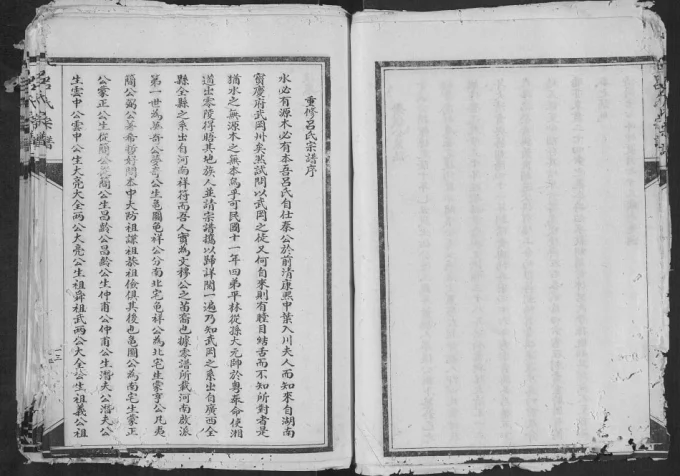 重修呂氏宗譜序
水必有源木必有本吾呂氏自仕泰公於前清康熙中葉入川夫人而知來自湖南
寶慶府武岡州矣然試問以武岡之從又何自來則有瞠目結舌而不知所對者是
猶水之無源木之無本烏乎可民國十一年四弟平林從孫大元帥於粵奉命使湘
道出零陵得晤其地族人並請宗譜攜以歸詳閱一遍乃知武岡之系出自廣西全
縣全縣之系出自河南祥符而吾人實為文穆公之苗裔也據零譜所載河南啟派
第一世為夢奇公夢奇公生龜圖龜祥公分南北宅龜祥公為北宅生蒙亨公凡夷
簡公弼公著希哲好問本中大防祖謙祖恭祖儉俱其後也龜圖公為南宅生蒙正
公蒙正公生從簡公從簡公生昌齡公昌齡公生仲甫公仲甫公生潛夫公潛夫公
生雲中公雲中公生大亮大全兩公大亮公生祖舜祖武兩公大全公生祖義公祖
呂氏宗譜